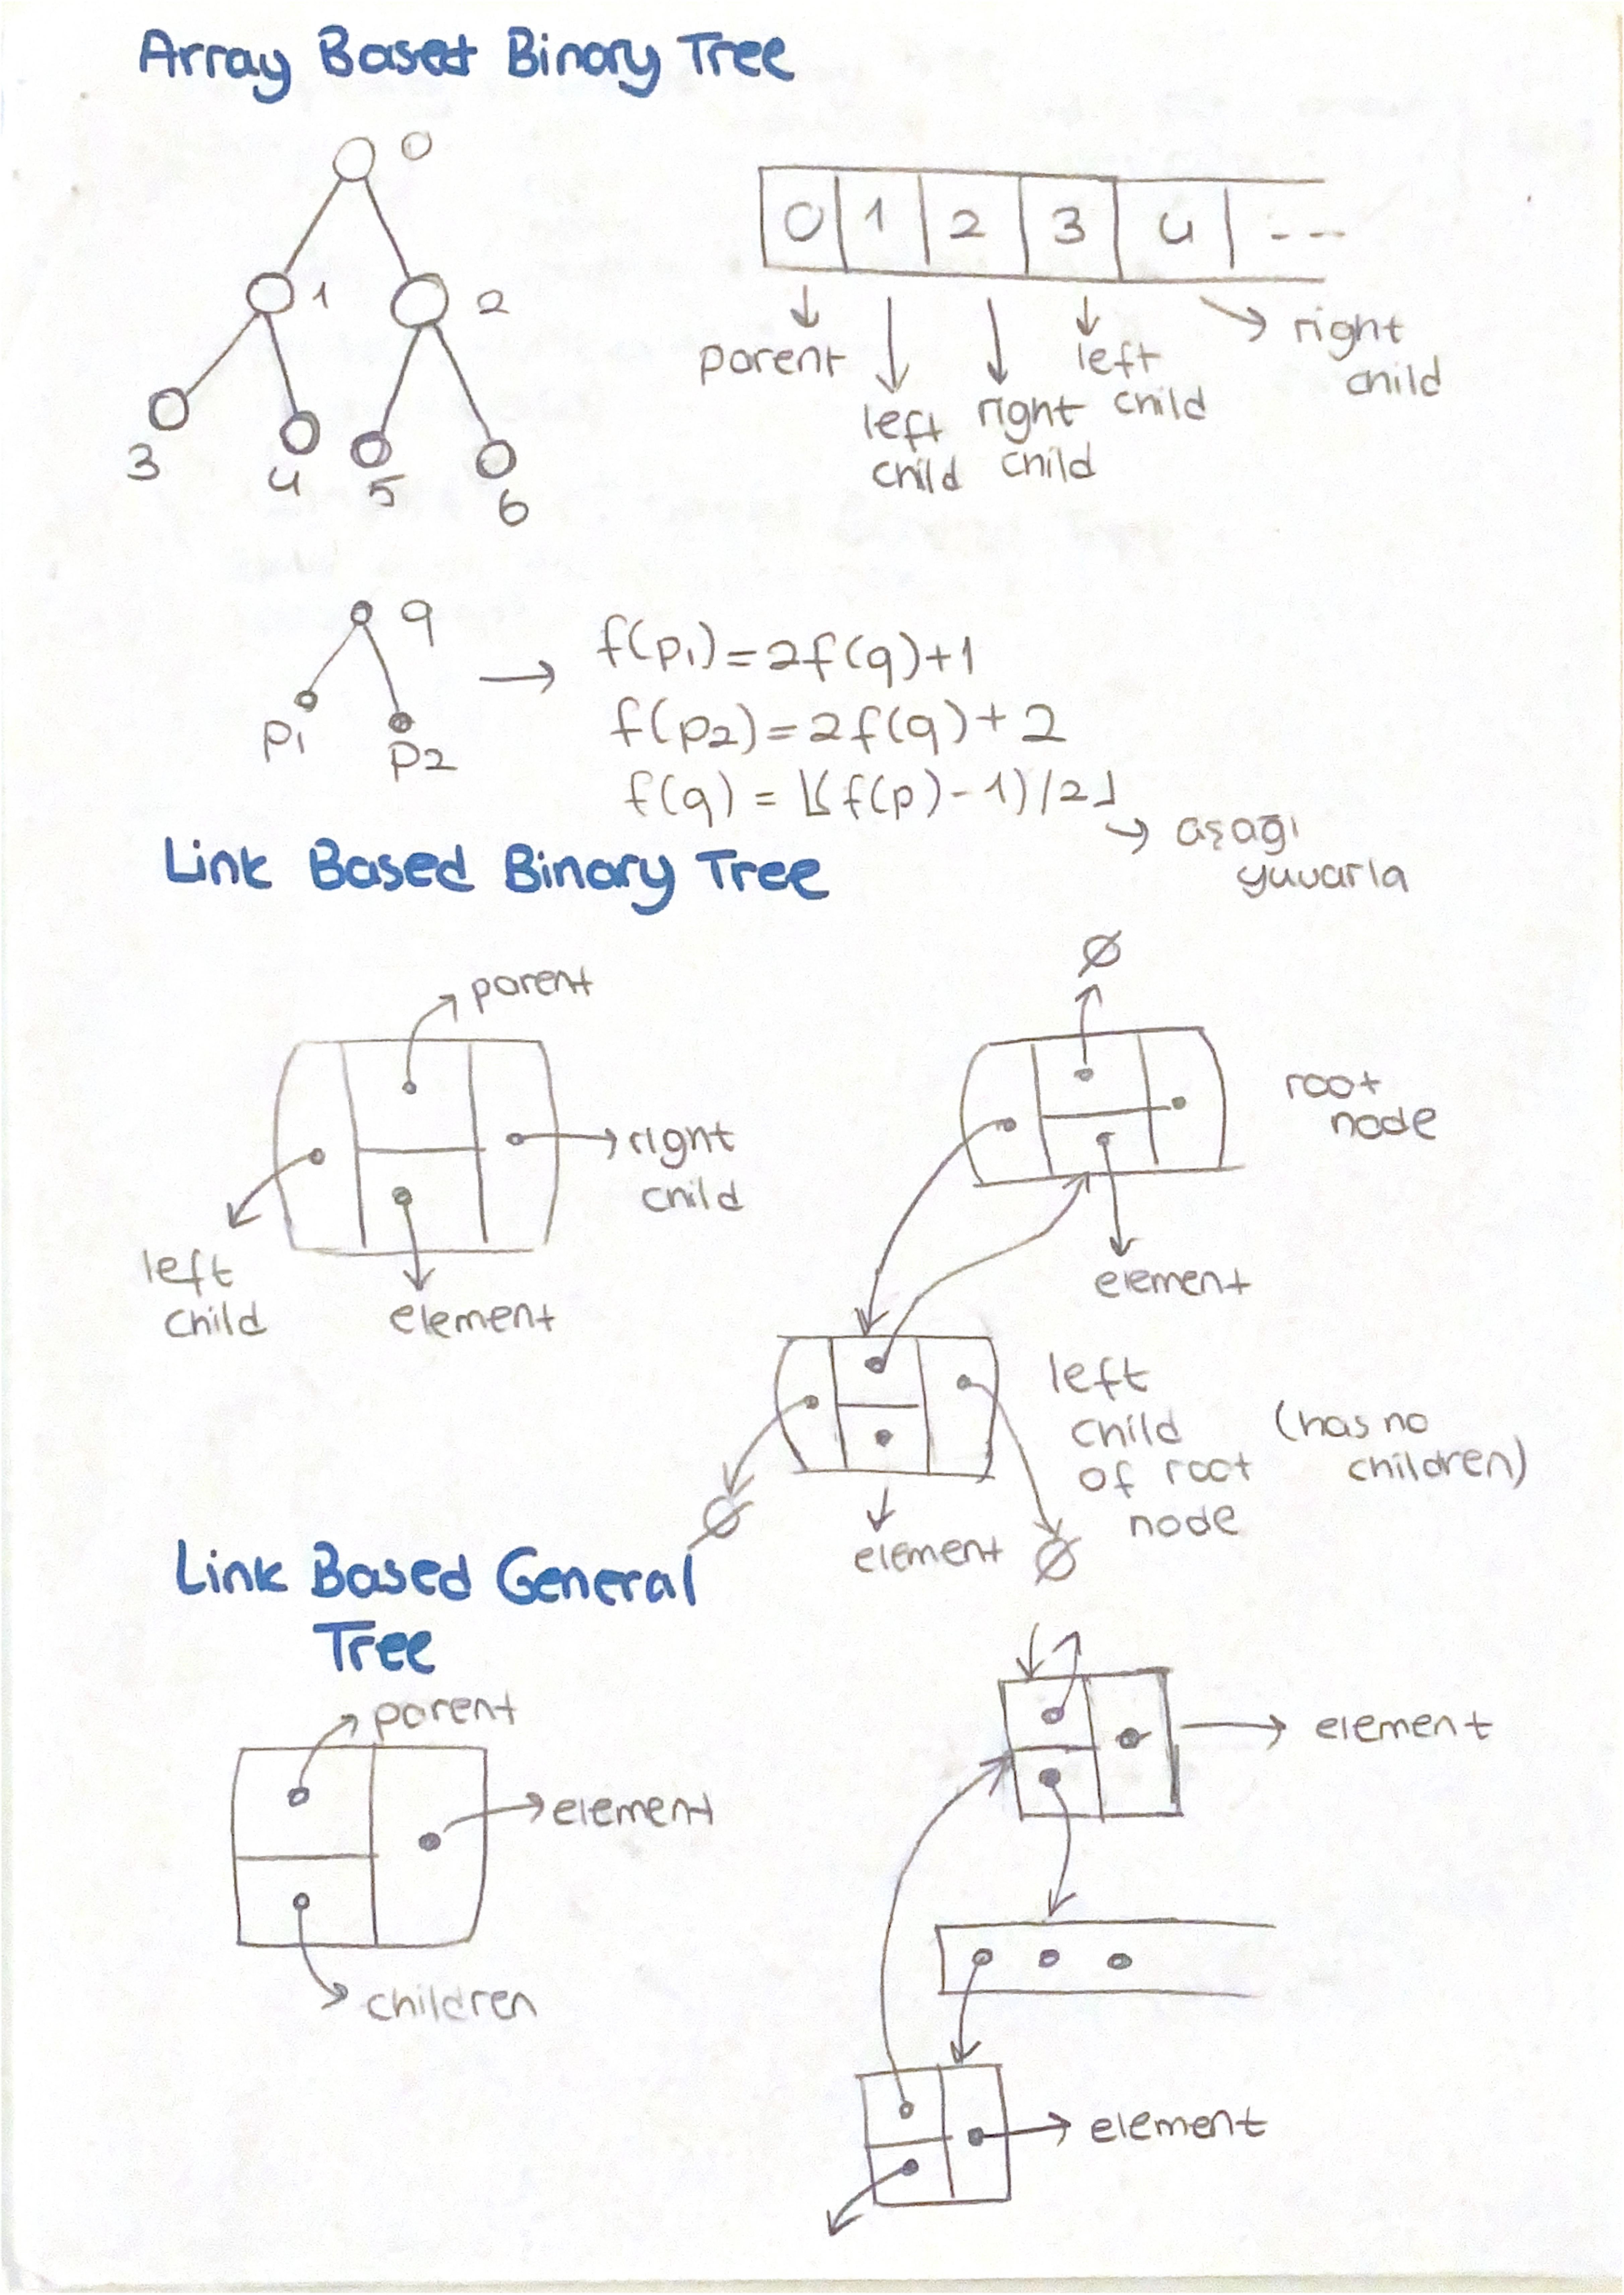 Array Based Binary Tree
0
1 2
3 4 5 6
0 1 2 3 4 ---
parent
left
child
right
child
left
child
right
child
q
p1
p2
f(p1)=2f(q)+1
f(p2)=2f(q)+2
f(q) = ⌊(f(p)-1)/2⌋
aşağı
yuvarla
Link Based Binary Tree
parent
right
child
left
child
element
Ø
root
node
element
left
child
of root
node
(has no
children)
Ø
element
Ø
Link Based General
Tree
parent
element
children
element
element